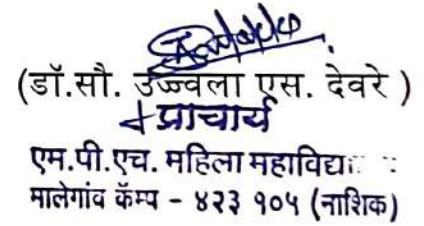 (डॉ.सौ. उज्ज्वला एस. देवरे )
प्राचार्य
एम.पी.एच. महिला
मालेगांव कॅम्प - ४२३ १०५ (नाशिक)